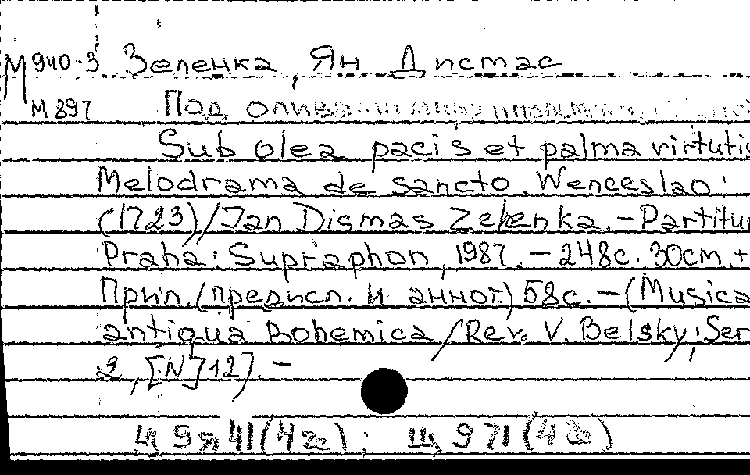 М 940-3 Зеленка, Ян Дисмас
М 897 Под
Sub olea pacis et palma virtutis
Melodrama de sancto Wenceslao
(1723)/Jan Dismas Zelenka.-Partitur
Praha: Supraphon, 1987.-248с. 30см.+
Прил. (предисл. и аннот.) 58с.-(Musica
antiqua Bohemica/Rev. V. Belsky; Ser
2, [N]12].-